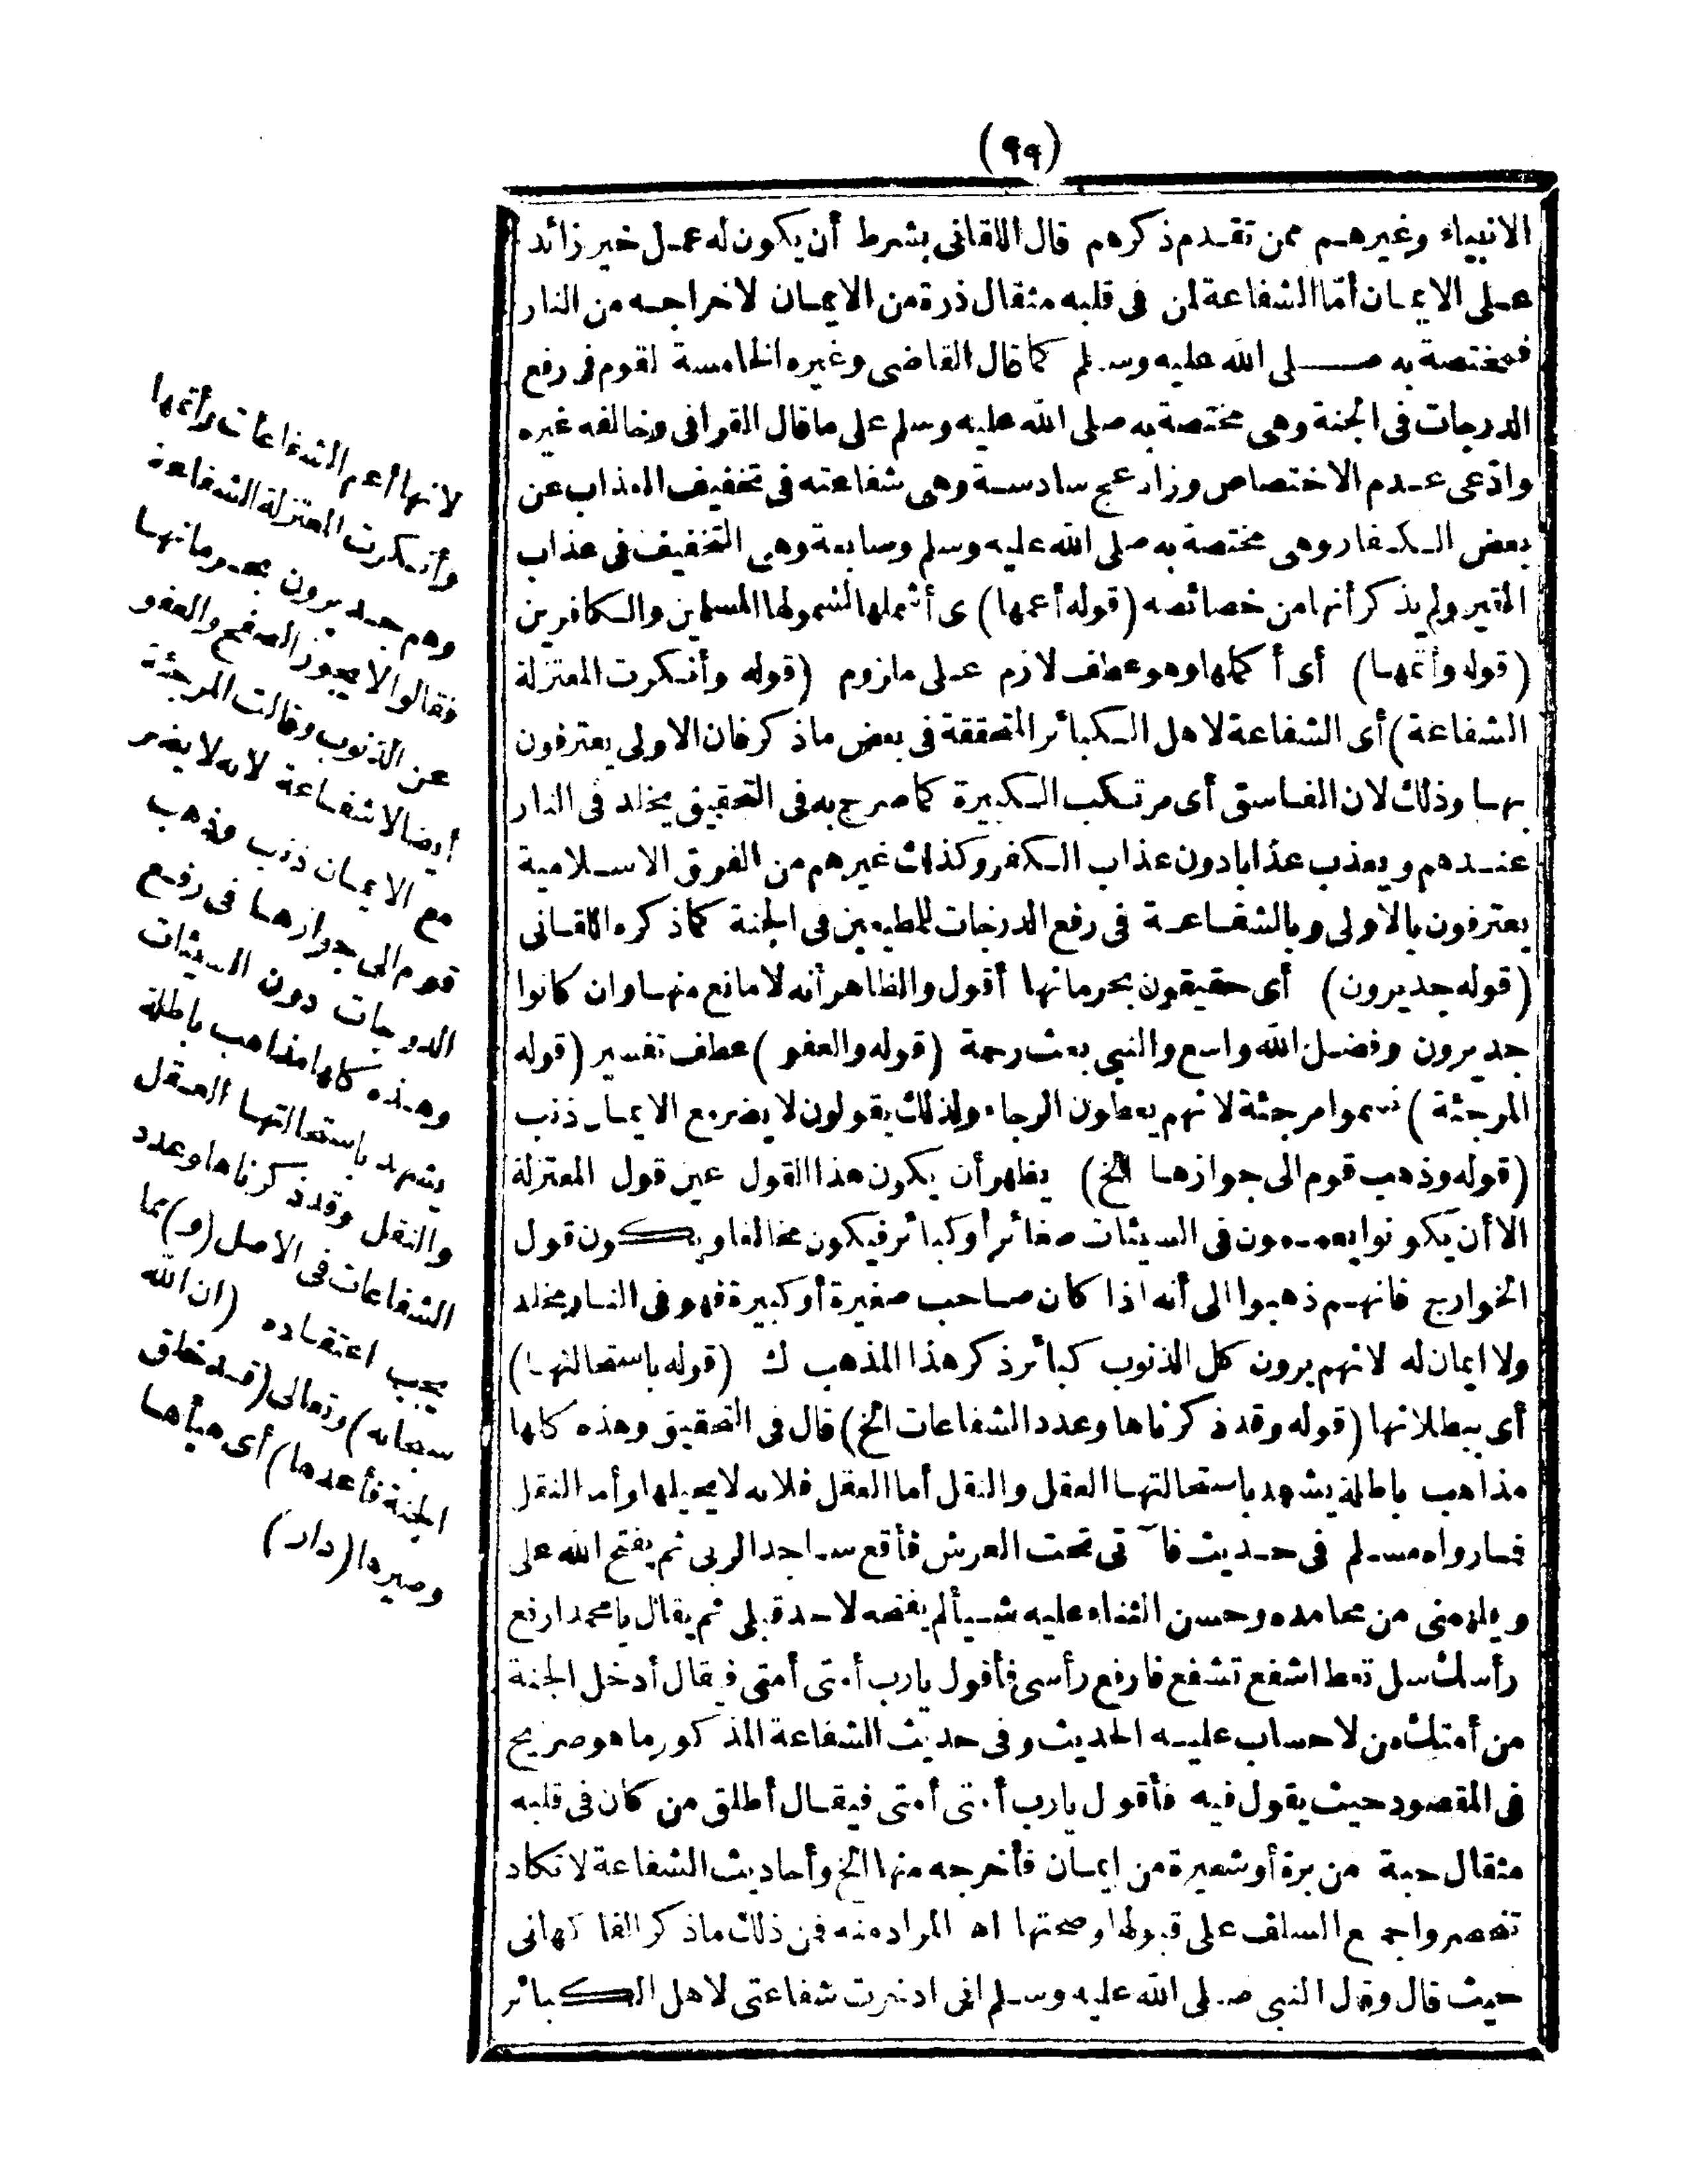 (٩٩)
الانبياء وغيرهم ممن تقدم ذكرهم قال اللقانى بشرط أن يكون له عمل خير زائد
على الايمان أما الشفاعة لمن فى قلبه مثقال ذرة من الايمان لاخراجه من النار
فمختصة به صلى الله عليه وسلم كما قال القاضى وغيره الخامسة لقوم فى رفع
الدرجات فى الجنة وهى مختصة به صلى الله عليه وسلم على ما قال القرافى وخالفه غيره
وادّعى عدم الاختصاص وزاد عج سادسة وهى شفاعته فى تخفيف العذاب عن
بعض الكفار وهى مختصة به صلى الله عليه وسلم وسابعة وهى التخفيف فى عذاب
القبر ولم يذكر أنها من خصائصه (قوله أعمها) ى أشملها لشمولها المسلمين والكافرين
(قوله وأتمها) أى أكملها وهو عطف لازم على ملزوم (قوله وأنكرت المعتزلة
الشفاعة) أى الشفاعة لاهل الكبائر المتحققة فى بعض ماذكر فان الاولى يعترفون
بها وذلك لان الفاسق أى مرتكب الكبيرة كما صرح به فى التحقيق يخلد فى النار
عندهم ويعذب عذابا دون عذاب الكفر وكذلك غيرهم من الفرق الاسلامية
يعترفون بالاولى وبالشفاعة فى رفع الدرجات للمطيعين فى الجنة كما ذكره اللقانى
(قوله جديرون) أى حقيقون بحرمانها أقول والظاهر أنه لا مانع منها وان كانوا
جديرون وفضل الله واسع والنبى بعث رحمة (قوله والعفو) عطف تفسير (قوله
المرجئة) سموا مرجئة لانهم يعطون الرجاء ولذلك يقولون لا يضر مع الايمان ذنب
(قوله وذهب قوم الى جوازها الخ) يظهر أن يكون هذا القول عين قول المعتزلة
الا أن يكونوا يعممون فى السيئات صغائر أو كبائر فيكون مخالفا ويكون قول
الخوارج فانهم ذهبوا الى أنه اذا كان صاحب صغيرة أو كبيرة فهو فى النار مخلد
ولا ايمان له لانهم يرون كل الذنوب كبائر ذكر هذا المذهب ك (قوله باستحالتها)
أى ببطلانها (قوله وقد ذكرناها وعدد الشفاعات الخ) قال فى التحقيق وهذه كلها
مذاهب باطلة يشهد باستحالتها العقل والنقل أما العقل فلانه لا يحيلها وأما النقل
فما رواه مسلم فى حديث فآتى تحت العرش فأقع ساجدا لربى ثم يفتح الله على
ويلهمنى من محامده وحسن الثناء عليه شيألم يفتحه لاحد قبلى ثم يقال يا محمد ارفع
رأسك سل تعط اشفع تشفع فارفع رأسى فأقول يارب أمتى أمتى فيقال أدخل الجنة
من أمتك من لا حساب عليه الحديث وفى حديث الشفاعة المذكور ما هو صريح
فى المقصود حيث يقول فيه فأقول يارب أمتى أمتى فيقال أطلق من كان فى قلبه
مثقال حبة من برة أو شعيرة من ايمان فأخرجه منها الخ وأحاديث الشفاعة لا تكاد
تنحصر واجمع السلف على قبولها وصحتها اه المراد منه فمن ذلك ماذكر الفاكهانى
حيث قال وقال النبى صلى الله عليه وسلم انى ادخرت شفاعتى لاهل الكبائر
لانها أعم الشفاعات وأتمها
وأنكرت المعتزلة الشفاعة
وهم جديرون بحرمانها
فقالوا لا يجوز الصفح والعفو
عن الذنوب وقالت المرجئة
أيضا لا شفاعة لانه لا يضر
مع الايمان ذنب وذهب
قوم الى جوازها فى رفع
الدرجات دون السيئات
وهذه كلها مذاهب باطلة
يشهد باستحالتها العقل
والنقل وقد ذكرناها وعدد
الشفاعات فى الاصل (و) مما
يجب اعتقاده (ان الله
سبحانه) وتعالى (قد خلق
الجنة فأعدها) أى هيأها
وصيرها (دار)